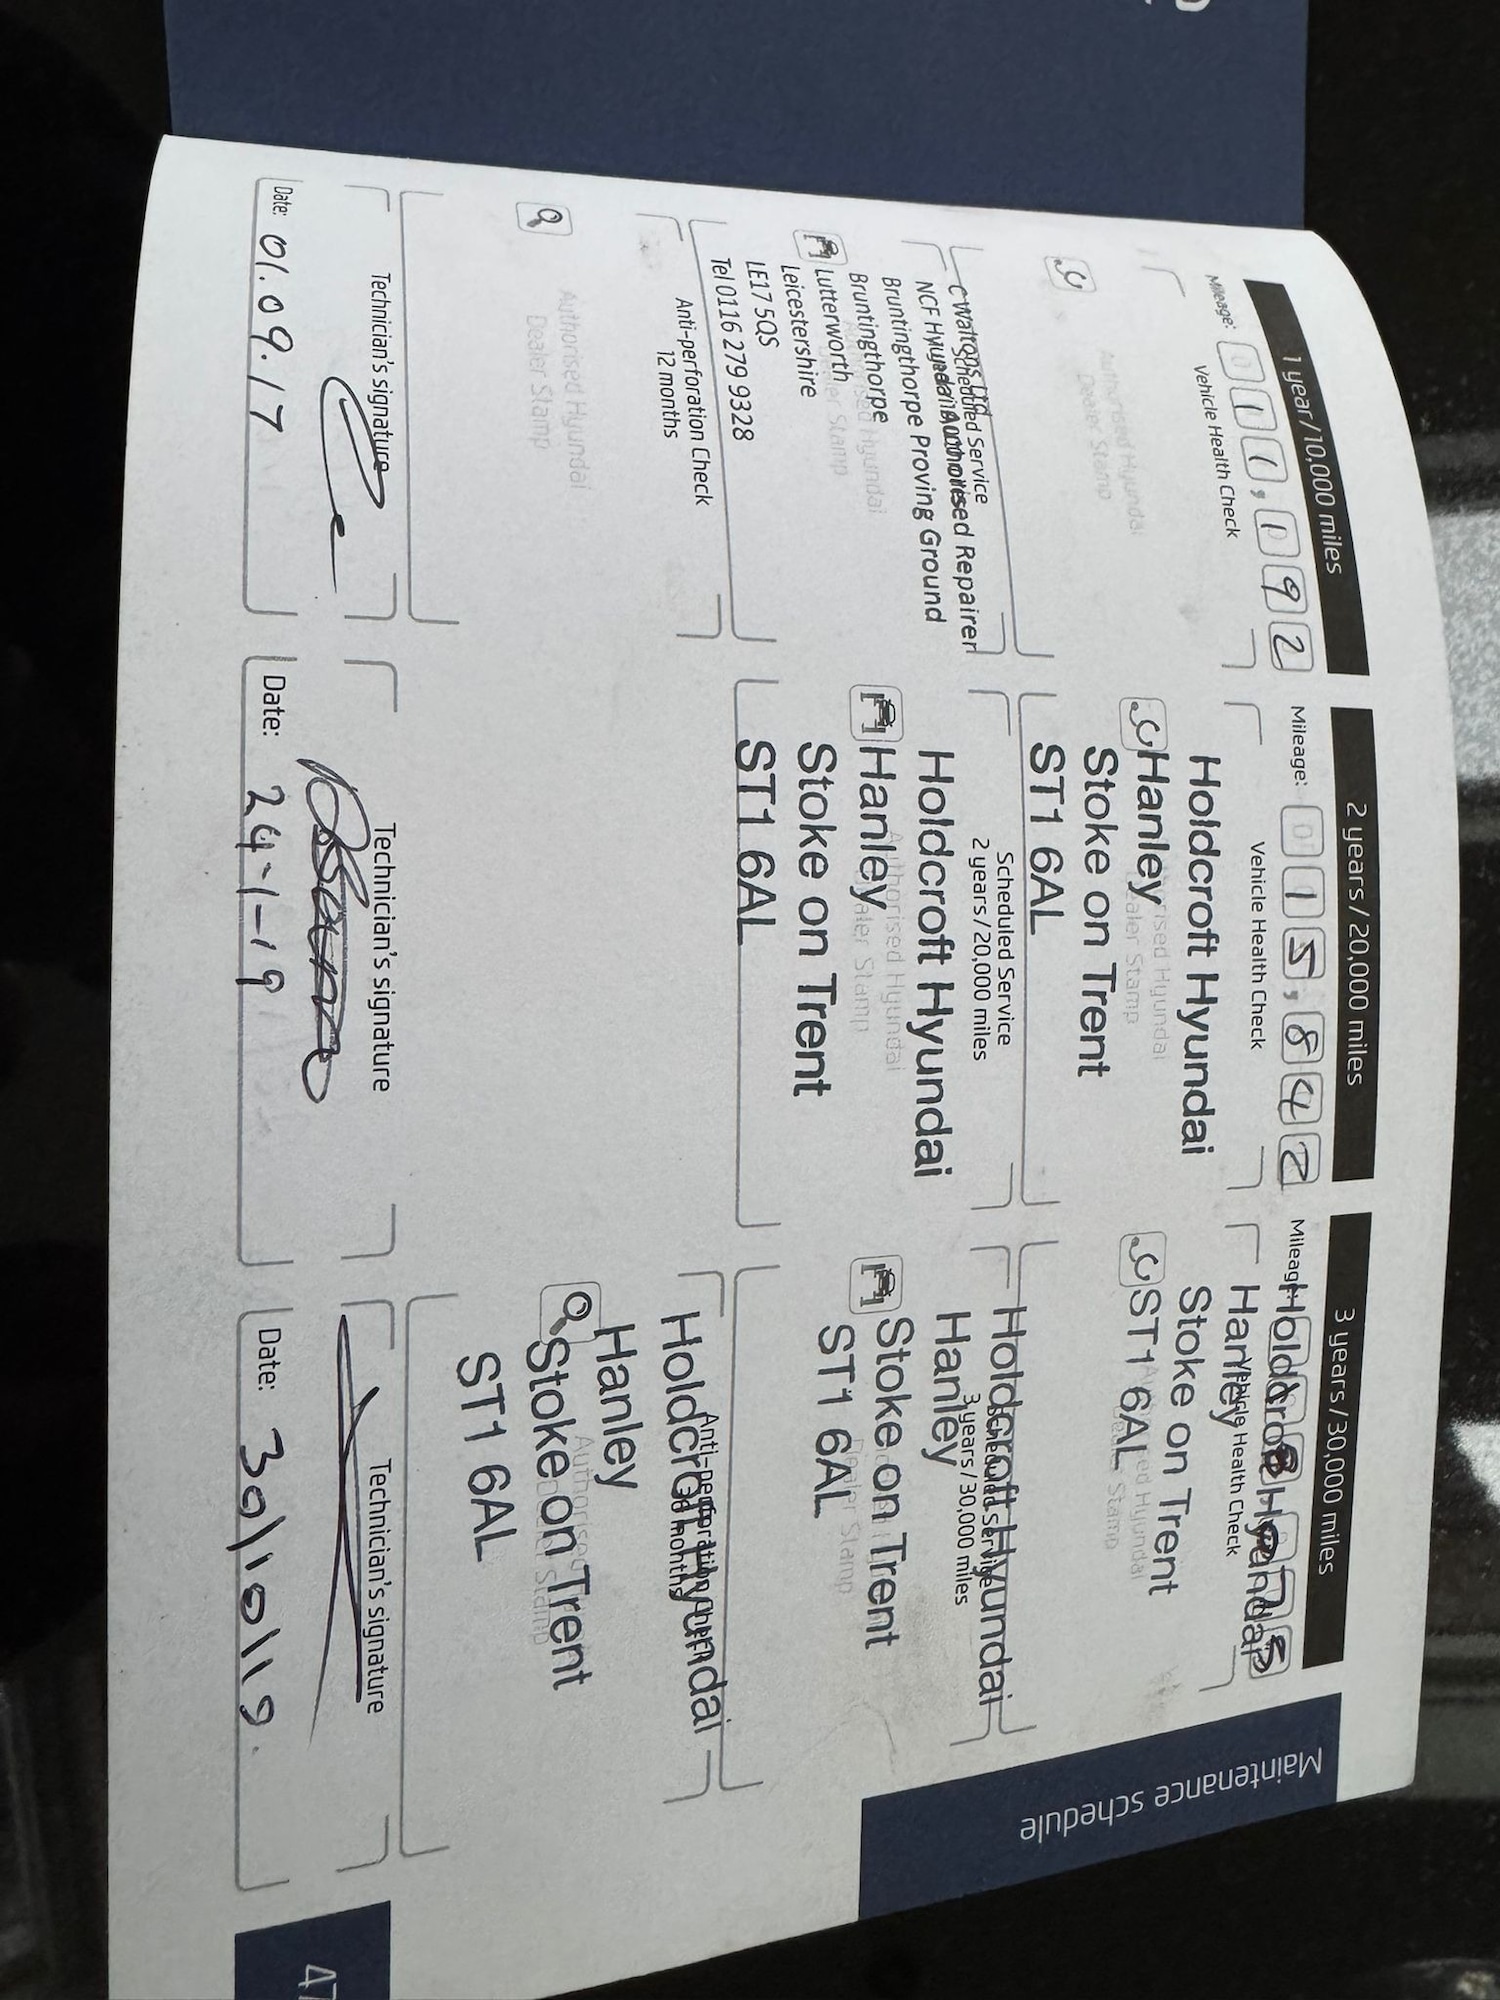 Maintenance schedule
1 year/10,000 miles
Mileage: 011,092
Vehicle Health Check
Authorised Hyundai
Dealer Stamp
Scheduled Service
C Waltons Ltd
NCF Hyundai Authorised Repairer
Bruntingthorpe Proving Ground
Bruntingthorpe
Lutterworth
Leicestershire
LE17 5QS
Tel 0116 279 9328
Anti-perforation Check
12 months
Authorised Hyundai
Dealer Stamp
Technician's signature
Date: 01.09.17
2 years/20,000 miles
Mileage: 015,842
Vehicle Health Check
Holdcroft Hyundai
Hanley
Stoke on Trent
ST1 6AL
Scheduled Service
2 years/20,000 miles
Holdcroft Hyundai
Hanley
Stoke on Trent
ST1 6AL
Technician's signature
Date: 24-1-19
3 years/30,000 miles
Mileage:
Vehicle Health Check
Holdcroft Hyundai
Hanley
Stoke on Trent
ST1 6AL
Scheduled Service
3 years/30,000 miles
Holdcroft Hyundai
Hanley
Stoke on Trent
ST1 6AL
Anti-perforation Check
months
Holdcroft Hyundai
Hanley
Stoke on Trent
ST1 6AL
Technician's signature
Date: 30/10/19.
47